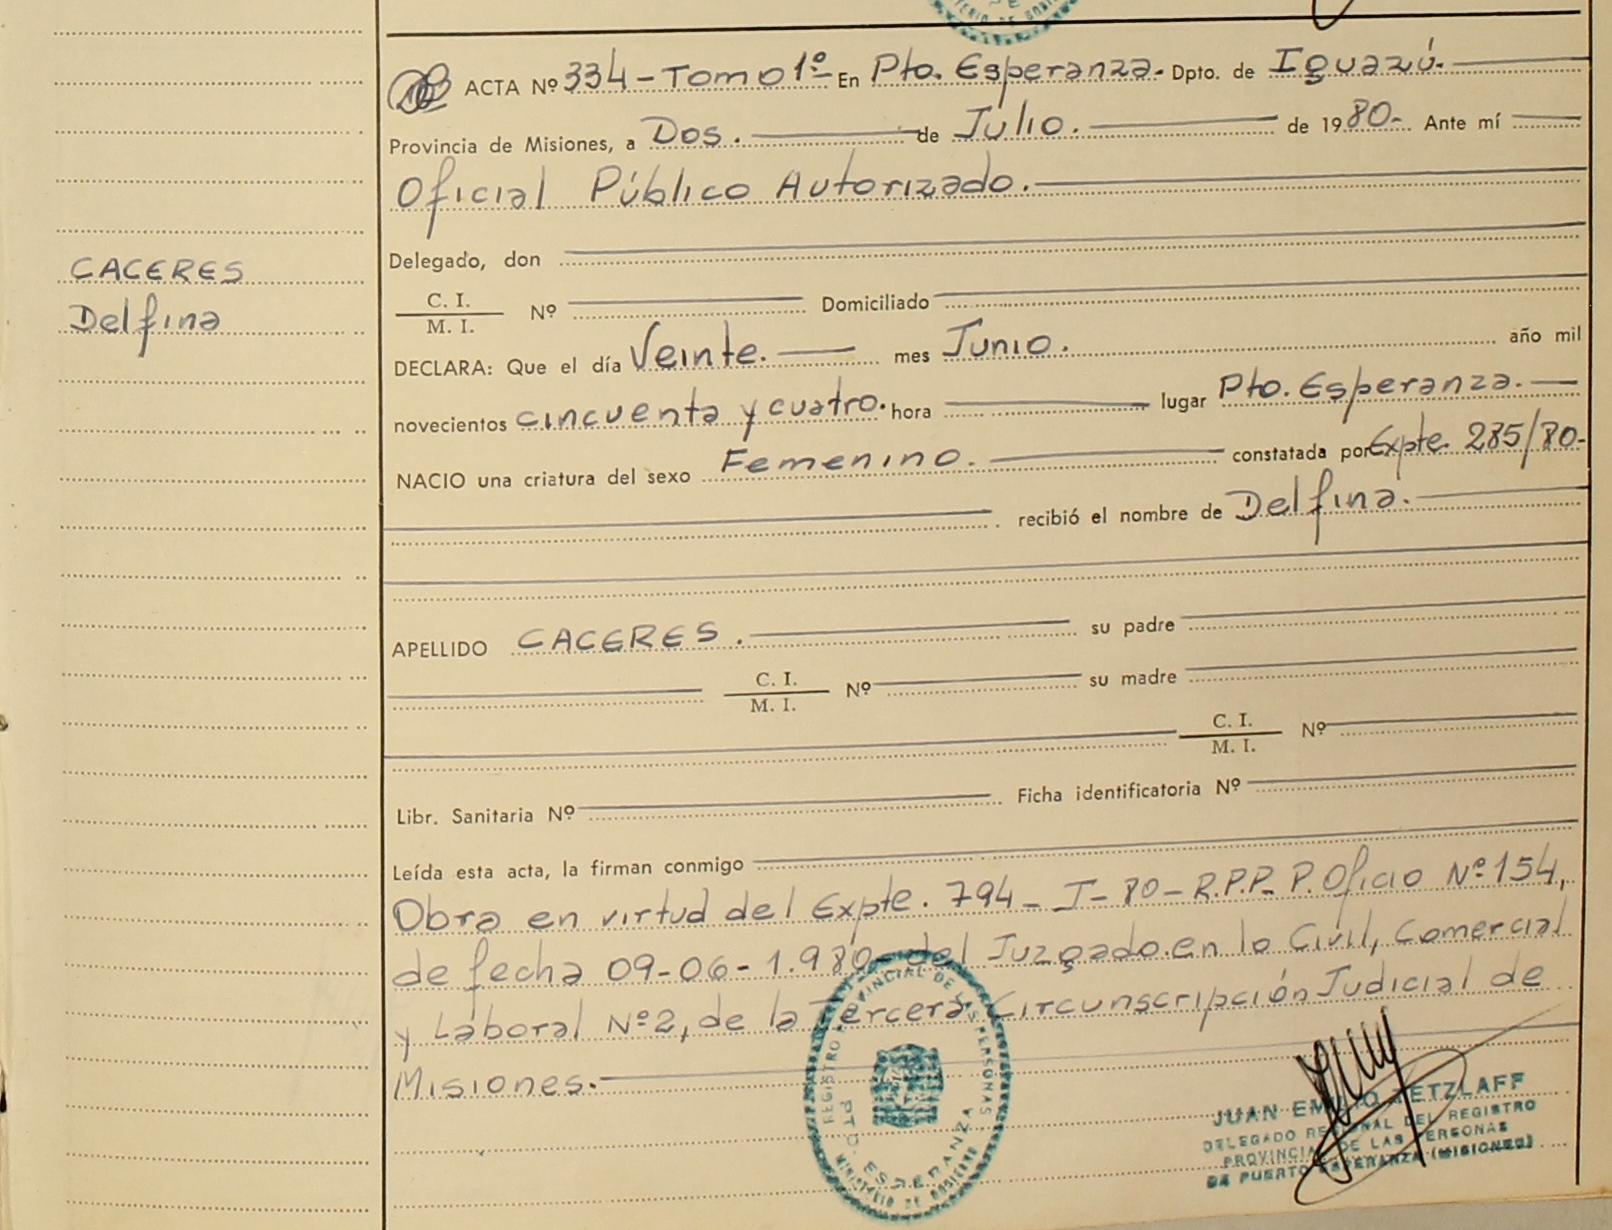 ACTA Nº 334 - Tomo 1º En Pto. Esperanza. Dpto. de Iguazú.
Provincia de Misiones, a Dos. de Julio. de 1980- Ante mí
Oficial Público Autorizado.
Delegado, don
CACERES
C. I.
M. I. Nº Domiciliado
Delfina
DECLARA: Que el día Veinte. mes Junio. año mil
novecientos cincuenta y cuatro. hora lugar Pto. Esperanza.
NACIO una criatura del sexo Femenino. constatada por Expte. 285/80-
recibió el nombre de Delfina.
APELLIDO CACERES. su padre
C. I.
M. I. Nº su madre
C. I.
M. I. Nº
Libr. Sanitaria Nº Ficha identificatoria Nº
Leída esta acta, la firman conmigo
Obra en virtud del Expte. 794 - J - 80 - R.P.P. P. Oficio Nº 154,
de fecha 09-06-1.980- del Juzgado en lo Civil, Comercial
y Laboral Nº 2, de la Tercera Circunscripción Judicial de
Misiones.
REGISTRO PROVINCIAL DE LAS PERSONAS
PTO. ESPERANZA
MINISTERIO DE GOBIERNO
JUAN EMILIO RETZLAFF
DELEGADO REGIONAL DEL REGISTRO
PROVINCIAL DE LAS PERSONAS
DE PUERTO ESPERANZA (MISIONES)